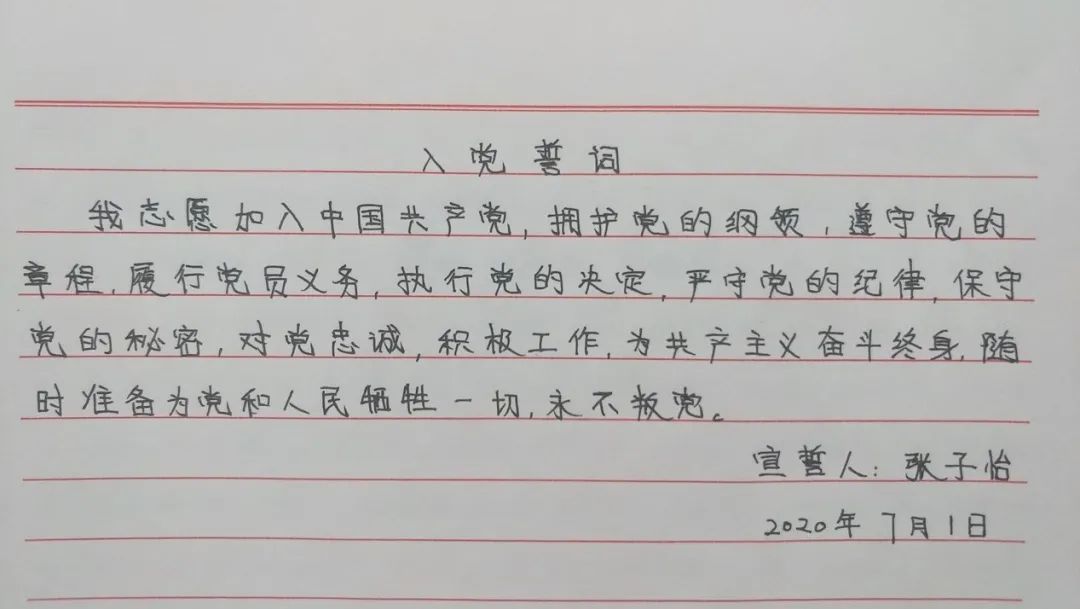 入党誓词
我志愿加入中国共产党,拥护党的纲领,遵守党的
章程,履行党员义务,执行党的决定,严守党的纪律,保守
党的秘密,对党忠诚,积极工作,为共产主义奋斗终身,随
时准备为党和人民牺牲一切,永不叛党。
宣誓人:张子怡
2020年7月1日